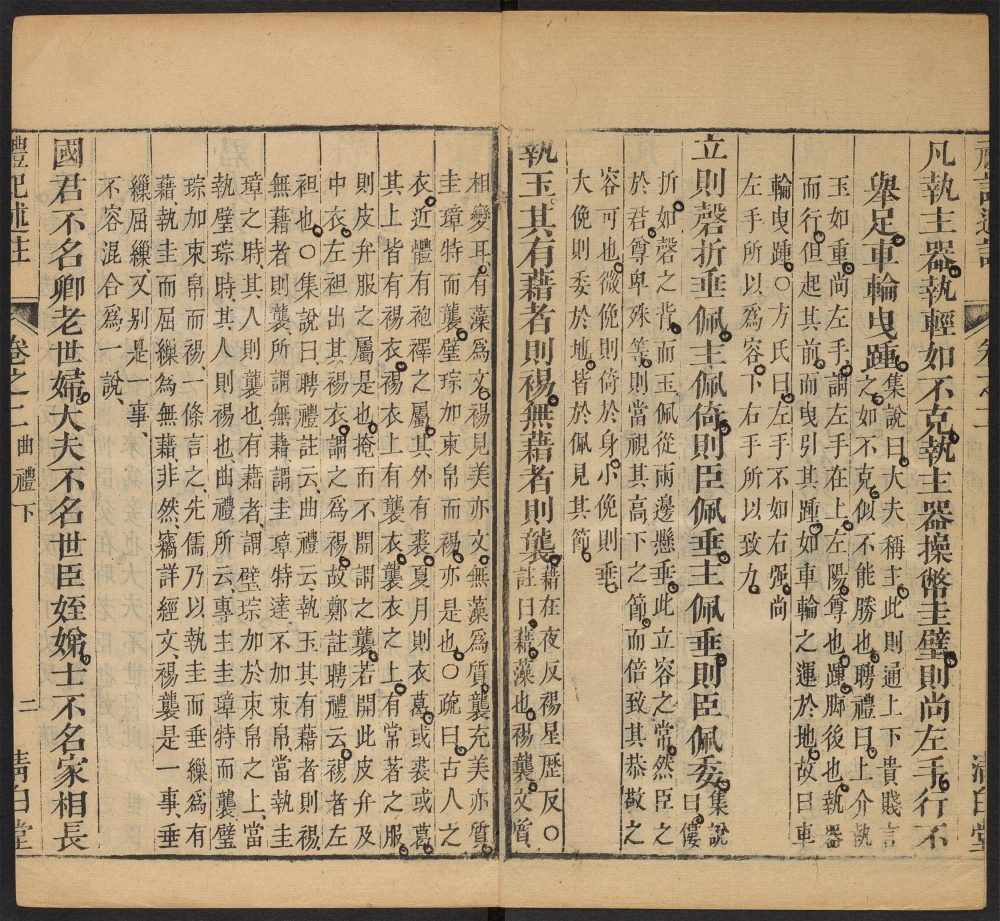 凡執主器執輕如不克執主器操幣圭璧則尚左手行不
舉足車輪曳踵集說曰大夫稱主此則通上下貴賤言
之如不克似不能勝也聘禮曰上介執
玉如重尚左手謂左手在上左陽尊也踵脚後也執器
而行但起其前而曳引其踵如車輪之運於地故曰車
輪曳踵○方氏曰左手不如右强尚
左手所以為容下右手所以致力
立則磬折垂佩主佩倚則臣佩垂主佩垂則臣佩委集說
曰僂
折如磬之背而玉佩從兩邊懸垂此立容之常然臣之
於君尊卑殊等則當視其高下之節而倍致其恭敬之
容可也微俛則倚於身小俛則垂
大俛則委於地皆於佩見其節
執玉其有藉者則裼無藉者則襲藉在夜反裼星歷反○
註曰藉藻也裼襲文質
相變耳有藻為文裼見美亦文無藻為質襲充美亦質
圭璋特而襲璧琮加束帛而裼亦是也○疏曰古人之
衣近體有袍襗之屬其外有裘夏月則衣葛或裘或葛
其上皆有裼衣裼衣上有襲衣襲衣之上有常著之服
則皮弁服之屬是也掩而不開謂之襲若開此皮弁及
中衣左袒出其裼衣謂之爲裼故鄭註聘禮云裼者左
袒也○集說曰聘禮註云曲禮云執玉其有藉者則裼
無藉者則襲所謂無藉謂圭璋特達不加束帛當執圭
璋之時其人則襲也有藉者謂璧琮加於束帛之上當
執璧琮時其人則裼也曲禮所云專主圭璋特而襲璧
琮加束帛而裼一條言之先儒乃以執圭而垂繅為有
藉執圭而屈繅為無藉非然竊詳經文裼襲是一事垂
繅屈繅又别是一事
不容混合爲一說
國君不名卿老世婦大夫不名世臣姪娣士不名家相長
禮記述註
卷之二
曲禮下
二
清白堂